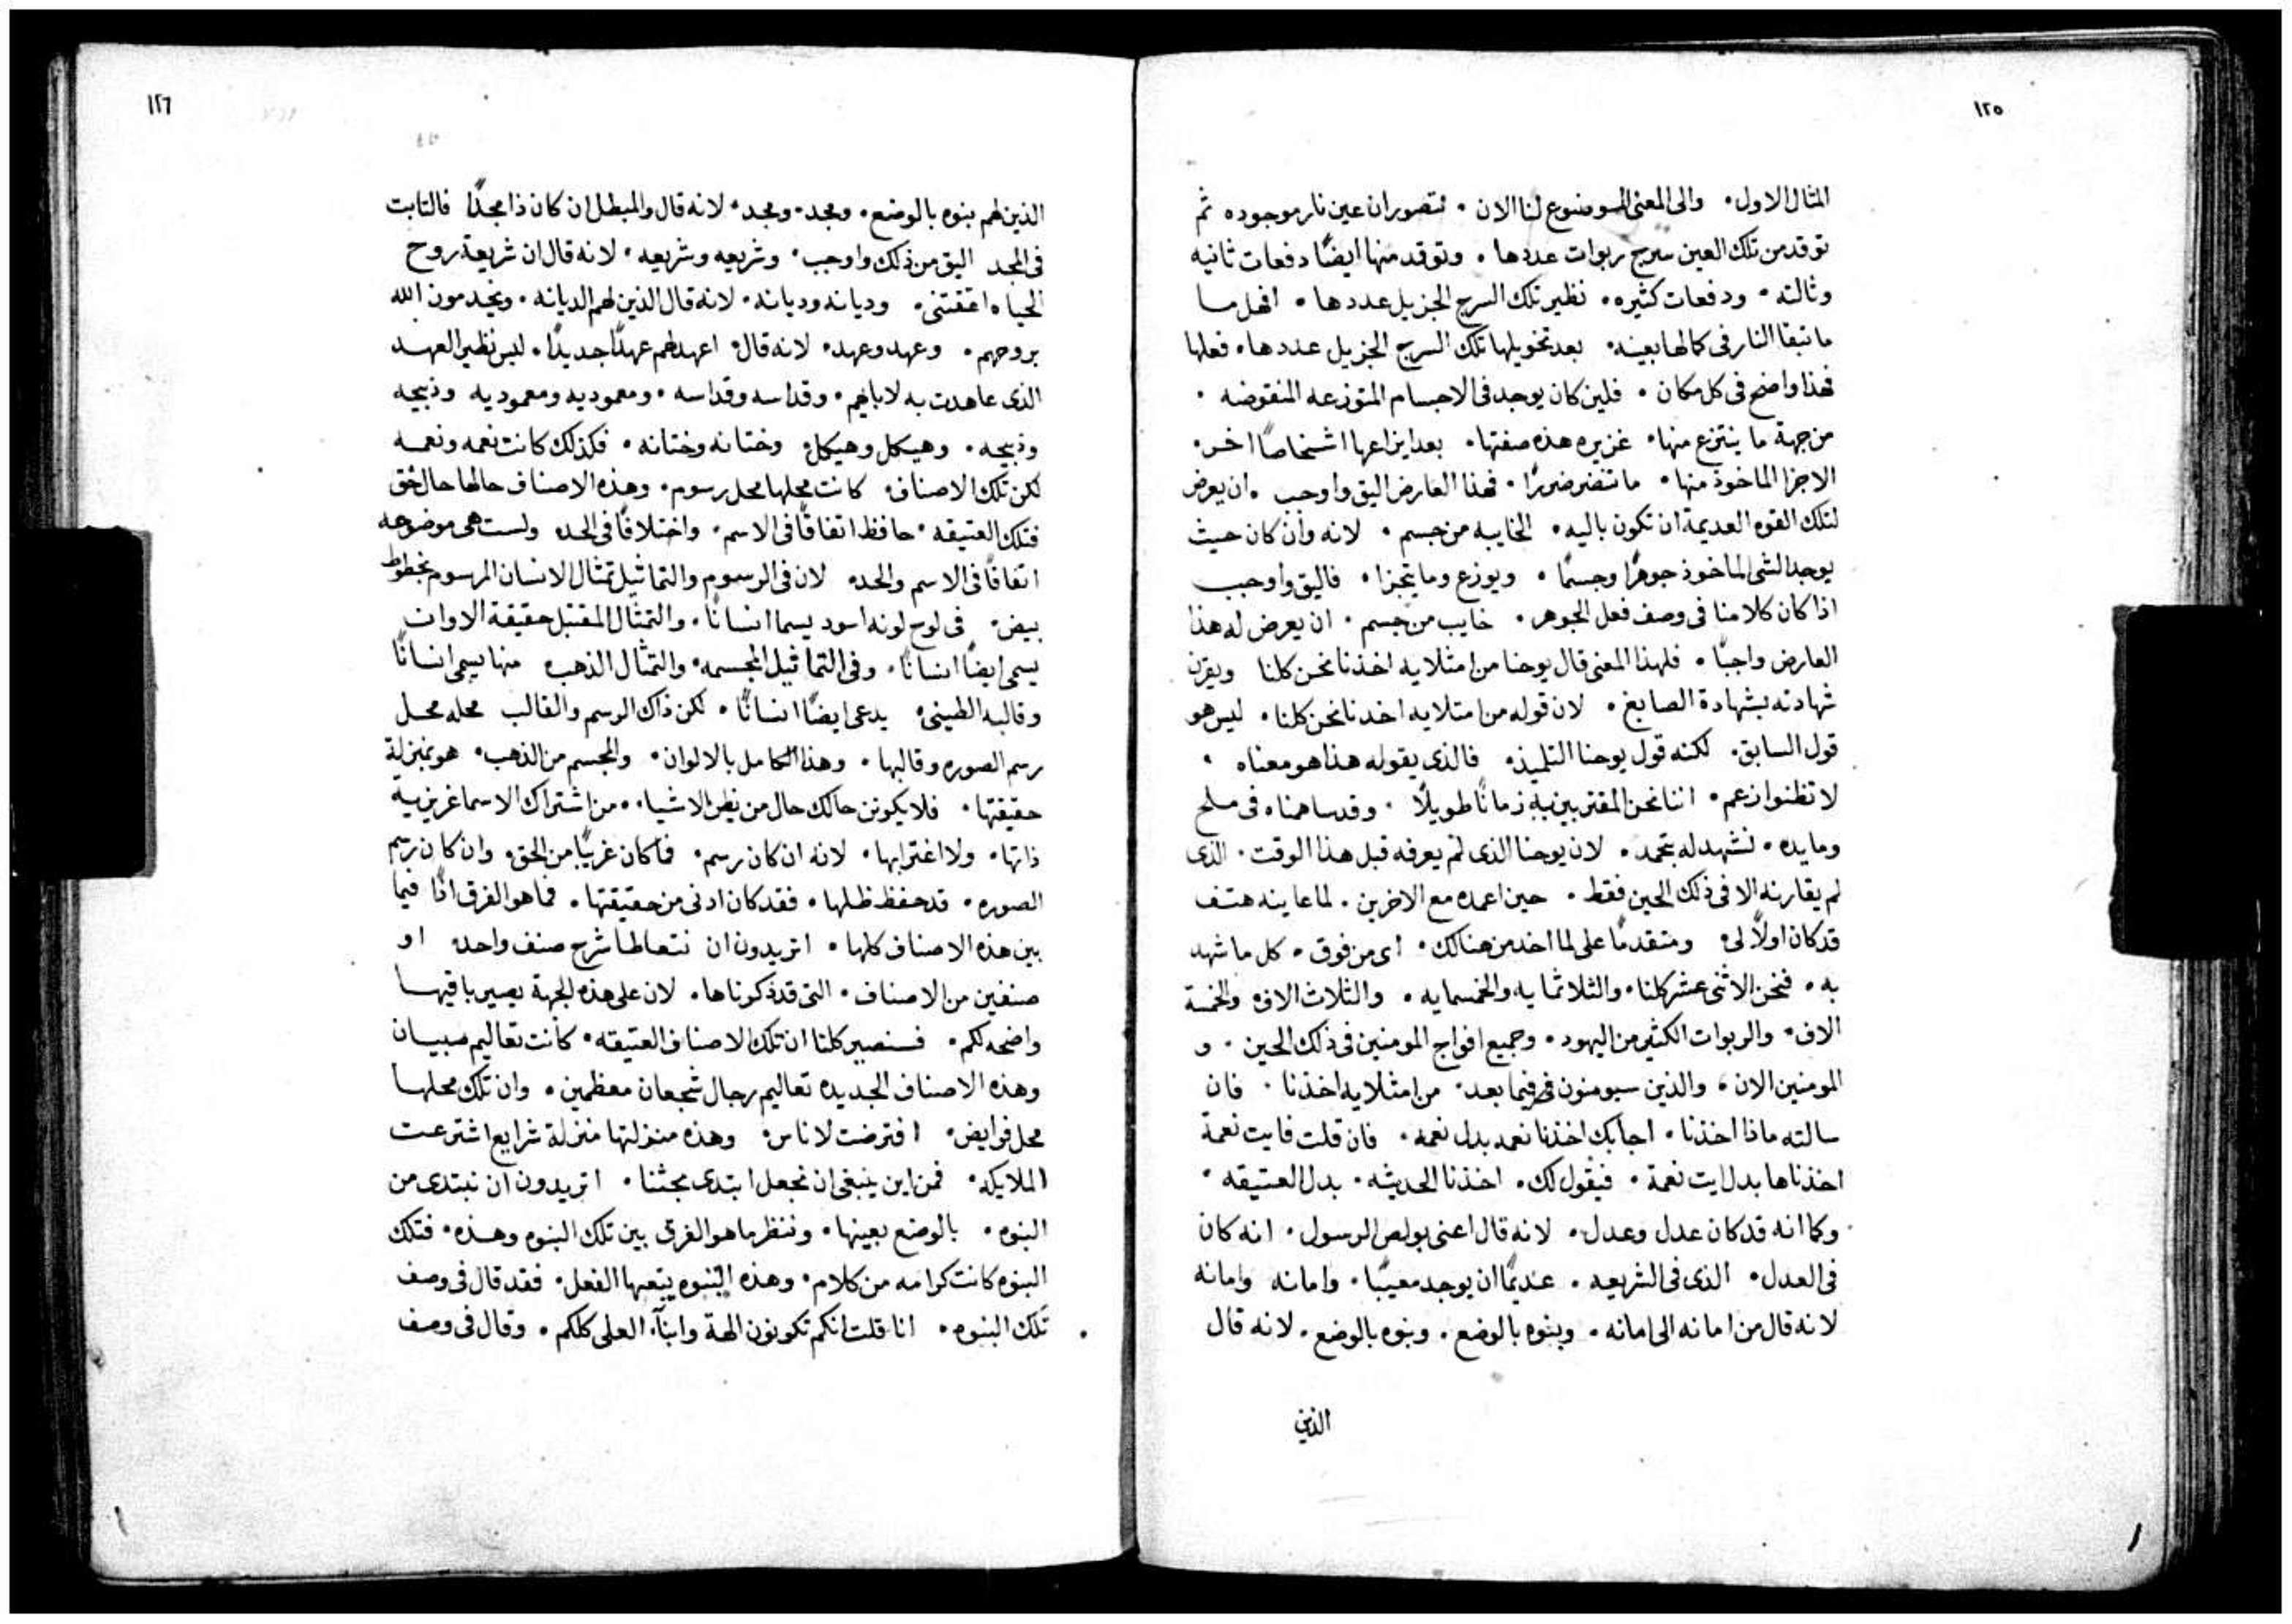 ١٢٥
المثال الاول. والى المعنى الموضوع لنا الان. نتصور ان عين نار موجوده ثم
توقد من تلك العين سرج ربوات عددها. وتوقد منها ايضًا دفعات ثانيه
وثالثه. ودفعات كثيره. نظير تلك السرج الجزيل عددها. افهل ما
ما تبقا النار فى كمالها بعينه. بعد تخويلها تلك السرج الجزيل عددها. فعلها
فهذا واضح فى كل مكان. فلين كان يوجد فى الاجسام المتوزعه المنقوضه.
من جهة ما ينتزع منها. غزيره هذه صفتها. بعد ايزاعها اشخاصًا اخر.
الاجزا الماخوذ منها. ما تنضر ضررًا. فهذا العارض اليق واوجب. ان يعرض
لتلك القوه العديمة ان تكون باليه. الخايبه من جسم. لانه وان كان حيث
يوجد الشى الماخوذ جوهرًا وجسمًا. ويوزع وما يتجزا. فاليق واوجب
اذا كان كلامنا فى وصف فعل الجوهر. خايب من جسم. ان يعرض له هذا
العارض واجبًا. فلهذا المعنى قال يوحنا من امتلايه اخذنا نحن كلنا ويقرن
شهادته بشهادة الصابغ. لان قوله من امتلايه اخذنا نحن كلنا. ليس هو
قول السابق. لكنه قول يوحنا التلميذ. فالذى يقوله هذا هو معناه.
لا تظنوا زعم. اننا نحن المقتربين به زمانًا طويلًا. وقد ساهمناه فى ملح
ومايده. نشهد له بتحمد. لان يوحنا الذى لم يعرفه قبل هذا الوقت. الذى
لم يقارنه الا فى ذلك الحين فقط. حين اعمده مع الاخرين. لما عاينه هتف
قد كان اولًا لى. ومتقدمًا على لما اخد من هنالك. اى من فوق. كل ما شهد
به. فنحن الاثنى عشر كلنا. والثلاثمايه والخمسمايه. والثلاث الاف. والخمسة
الاف. والربوات الكثير من اليهود. وجميع افواج المومنين فى ذلك الحين. و
المومنين الان. والذين سيومنون فيما بعد. من امتلايه اخذنا. فان
سالته ماذا اخذنا. اجابك اخذنا نعمه بدل نعمه. فان قلت فايت نعمة
اخذناها بدل ايت نعمة. فيقول لك. اخذنا الحديثه. بدل العتيقه.
وكما انه قد كان عدل وعدل. لانه قال اعنى بولص الرسول. انه كان
فى العدل. الذى فى الشريعه. عديمًا ان يوجد معيبًا. وامانه وامانه
لانه قال من امانه الى امانه. وبنوه بالوضع. وبنوه بالوضع. لانه قال
الذين
١٢٦
الذين لهم بنوه بالوضع. ومجد. ومجد. لانه قال والمبطل ان كان ذا مجدًا فالثابت
فى المجد اليق من ذلك واوجب. وشريعه وشريعه. لانه قال ان شريعة روح
الحياه اعتقتنى. وديانه وديانه. لانه قال الذين لهم الديانه. ويخدمون الله
بروحهم. وعهد وعهد. لانه قال. اعهد لهم عهدًا جديدًا. ليس نظير العهد
الذى عاهدت به لابايهم. وقداسه وقداسه. ومعموديه ومعموديه وذبيحه
وذبيحه. وهيكل وهيكل. وختانه وختانه. فكذلك كانت نعمه ونعمه
لكن تلك الاصناف. كانت محلها محل رسوم. وهذه الاصناف حالها حال حق
فتلك العتيقه. حافظ اتفاقًا فى الاسم. واختلافًا فى الحد. ولست هى موضوعه
اتفاقًا فى الاسم والحد. لان فى الرسوم والتماثيل تمثال الانسان المرسوم بخطوط
بيض. فى لوح لونه اسود يسما انسانًا. والتمثال المقتبل حقيقة الاوان
يسمى ايضًا انسانًا. وفى التماثيل المجسمه. والتمثال الذهب منها يسمى انسانًا
وقالبه الطينى. يدعى ايضًا انسانًا. لكن ذاك الرسم والقالب محله محل
رسم الصوره وقالبها. وهذا الكامل بالالوان. والمجسم من الذهب. هو بمنزلة
حقيقتها. فلا يكونن حالك حال من يظن الاشيا. من اشتراك الاسما غريزية
ذاتها. ولا اغترابها. لانه ان كان رسم. فما كان غريبًا من الحق. وان كان رسم
الصوره. قد حفظ ظلها. فقد كان ادنى من حقيقتها. فما هو الفرق اذًا فيما
بين هذه الاصناف كلها. اتريدون ان نتعاطا شرح صنف واحد. او
صنفين من الاصناف. التى قد ذكرناها. لان على هذه الجهة يصير باقيها
واضحه لكم. فسنصير كلنا ان تلك الاصناف العتيقه. كانت تعاليم صبيان
وهذه الاصناف الجديده تعاليم رجال شجعان معظمين. وان تلك محلها
محل فرايض. افترضت لاناس. وهذه منزلتها منزلة شرايع اشترعت
الملايكه. فمن اين ينبغى ان نجعل ابتدى بحثنا. اتريدون ان نبتدى من
البنوه. بالوضع بعينها. وننظر ما هو الفرق بين تلك البنوه وهذه. فتلك
البنوه كانت كرامه من كلام. وهذه البنوه يتبعها الفعل. فقد قال فى وصف
تلك البنوه. انا قلت انكم تكونون الهة وابنآء العلى كلكم. وقال فى وصف